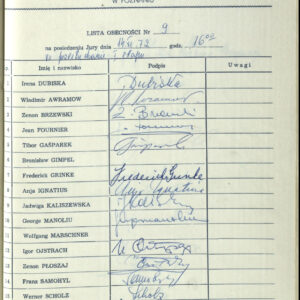 W POZNANIU
LISTA OBECNOŚCI Nr 9
na posiedzeniu Jury dnia 14 XI 72 godz. 16°°
Lp. Imię i nazwisko Podpis Uwagi
1 Irena DUBISKA I. Dubiska
2 Wladimir AWRAMOW
3 Zenon BRZEWSKI Z. Brzewski
4 Jean FOURNIER J. Fournier
5 Tibor GAŠPAREK Gašparek
6 Bronisław GIMPEL
7 Frederick GRINKE Frederick Grinke
8 Anja IGNATIUS Anja Ignatius
9 Jadwiga KALISZEWSKA
10 George MANOLIU GManoliu
11 Wolfgang MARSCHNER
12 Igor OJSTRACH
13 Zenon PŁOSZAJ
14 Franz SAMOHYL Samohyl
Werner SCHOLZ Scholz